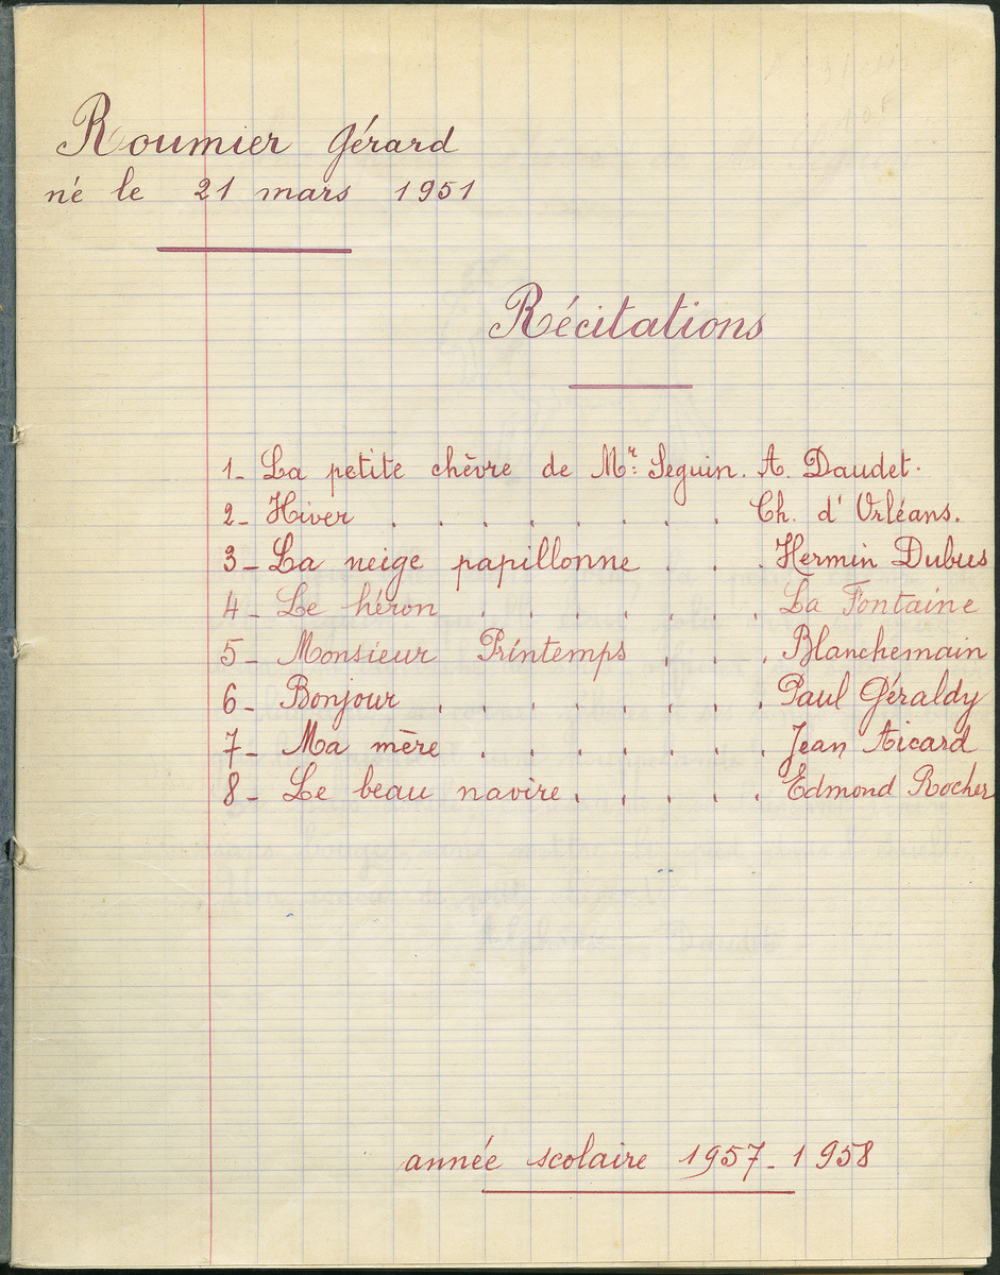 Roumier Gérard
né le 21 mars 1951
Récitations
1_ La petite chèvre de Mr: Seguin. A. Daudet.
2_ Hiver . . . . . . . . Ch. d'Orléans.
3_ La neige papillonne . . . Hermin Dubus
4_ Le héron . . . . . . . La Fontaine
5_ Monsieur Printemps . . . Blanchemain
6_ Bonjour . . . . . . . . Paul Géraldy
7_ Ma mère . . . . . . . Jean Aicard
8_ Le beau navire . . . . . Edmond Rocher
année scolaire 1957_1958